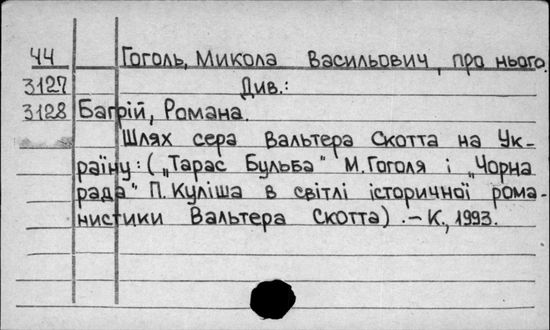 44 Гоголь, Микола Васильович, про нього.
3127 Див.:
3128 Багрій, Романа.
Шлях сера Вальтера Скотта на Ук-
раїну: („Тарас Бульба" М. Гоголя і „Чорна
рада" П. Куліша в світлі історичної рома-
нистики Вальтера Скотта). – К., 1993.